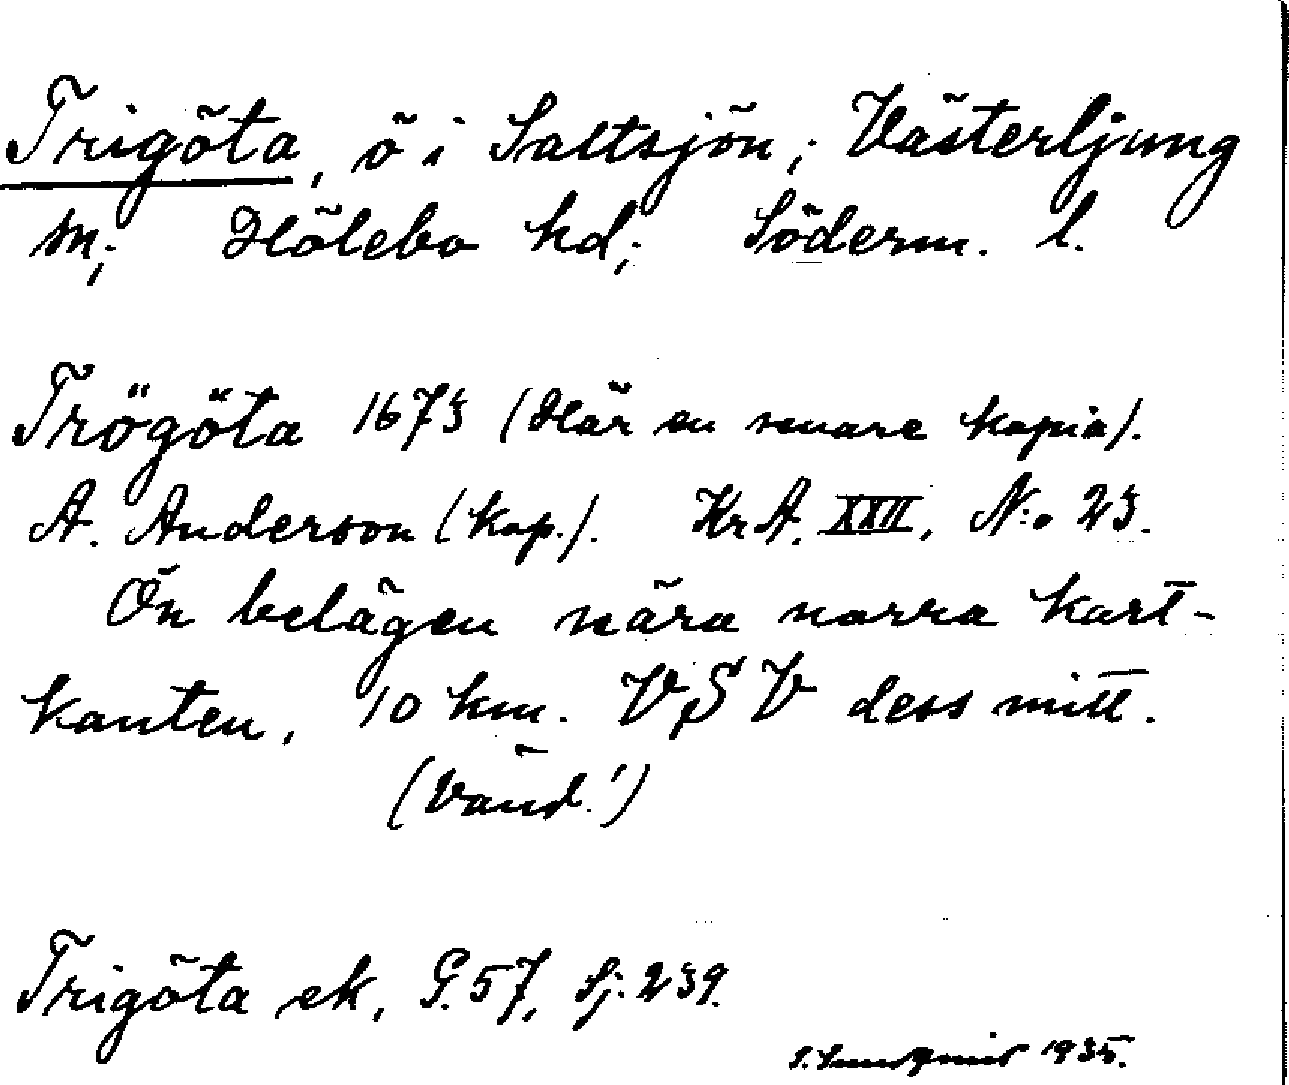 Trigöta, ö i Saltsjön; Västerljung
sn; Hölebo hd; Söderm. l.
Trögöta 1673 (Här en senare kopia).
A. Anderson (kop.). KrA. XXII, N:o 23.
Ön belägen nära norra kart-
kanten, 10 km. VSV dess mitt.
(Vänd!)
Trigöta ek, G. 57, Sj. 239.
1935.